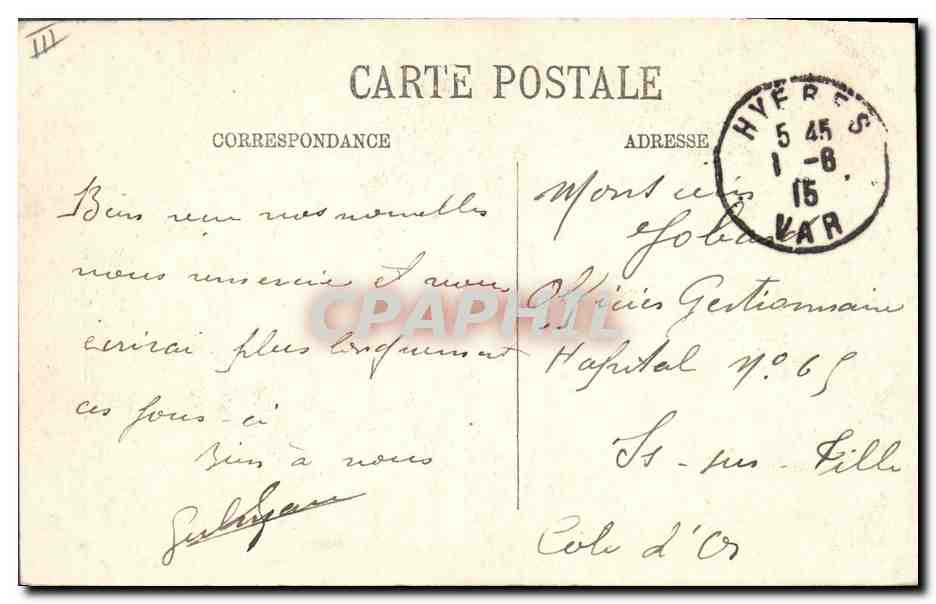 III
CARTE POSTALE
CORRESPONDANCE
ADRESSE
HYÈRES
5 45
1 -6
15
VAR
Bien reçu vos nouvelles
vous remercie et vous
écrirai plus longuement
ces jours-ci
Bien à vous
Monsieur
Officier Gestionnaire
Hopital No. 65
Is-sur-Tille
Côte d'Or
CPAPHIL